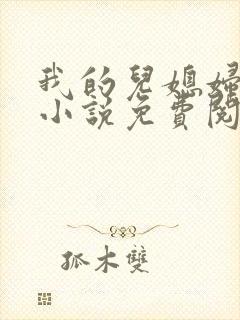 我的兒媳婦
小說免費閱
孤木雙